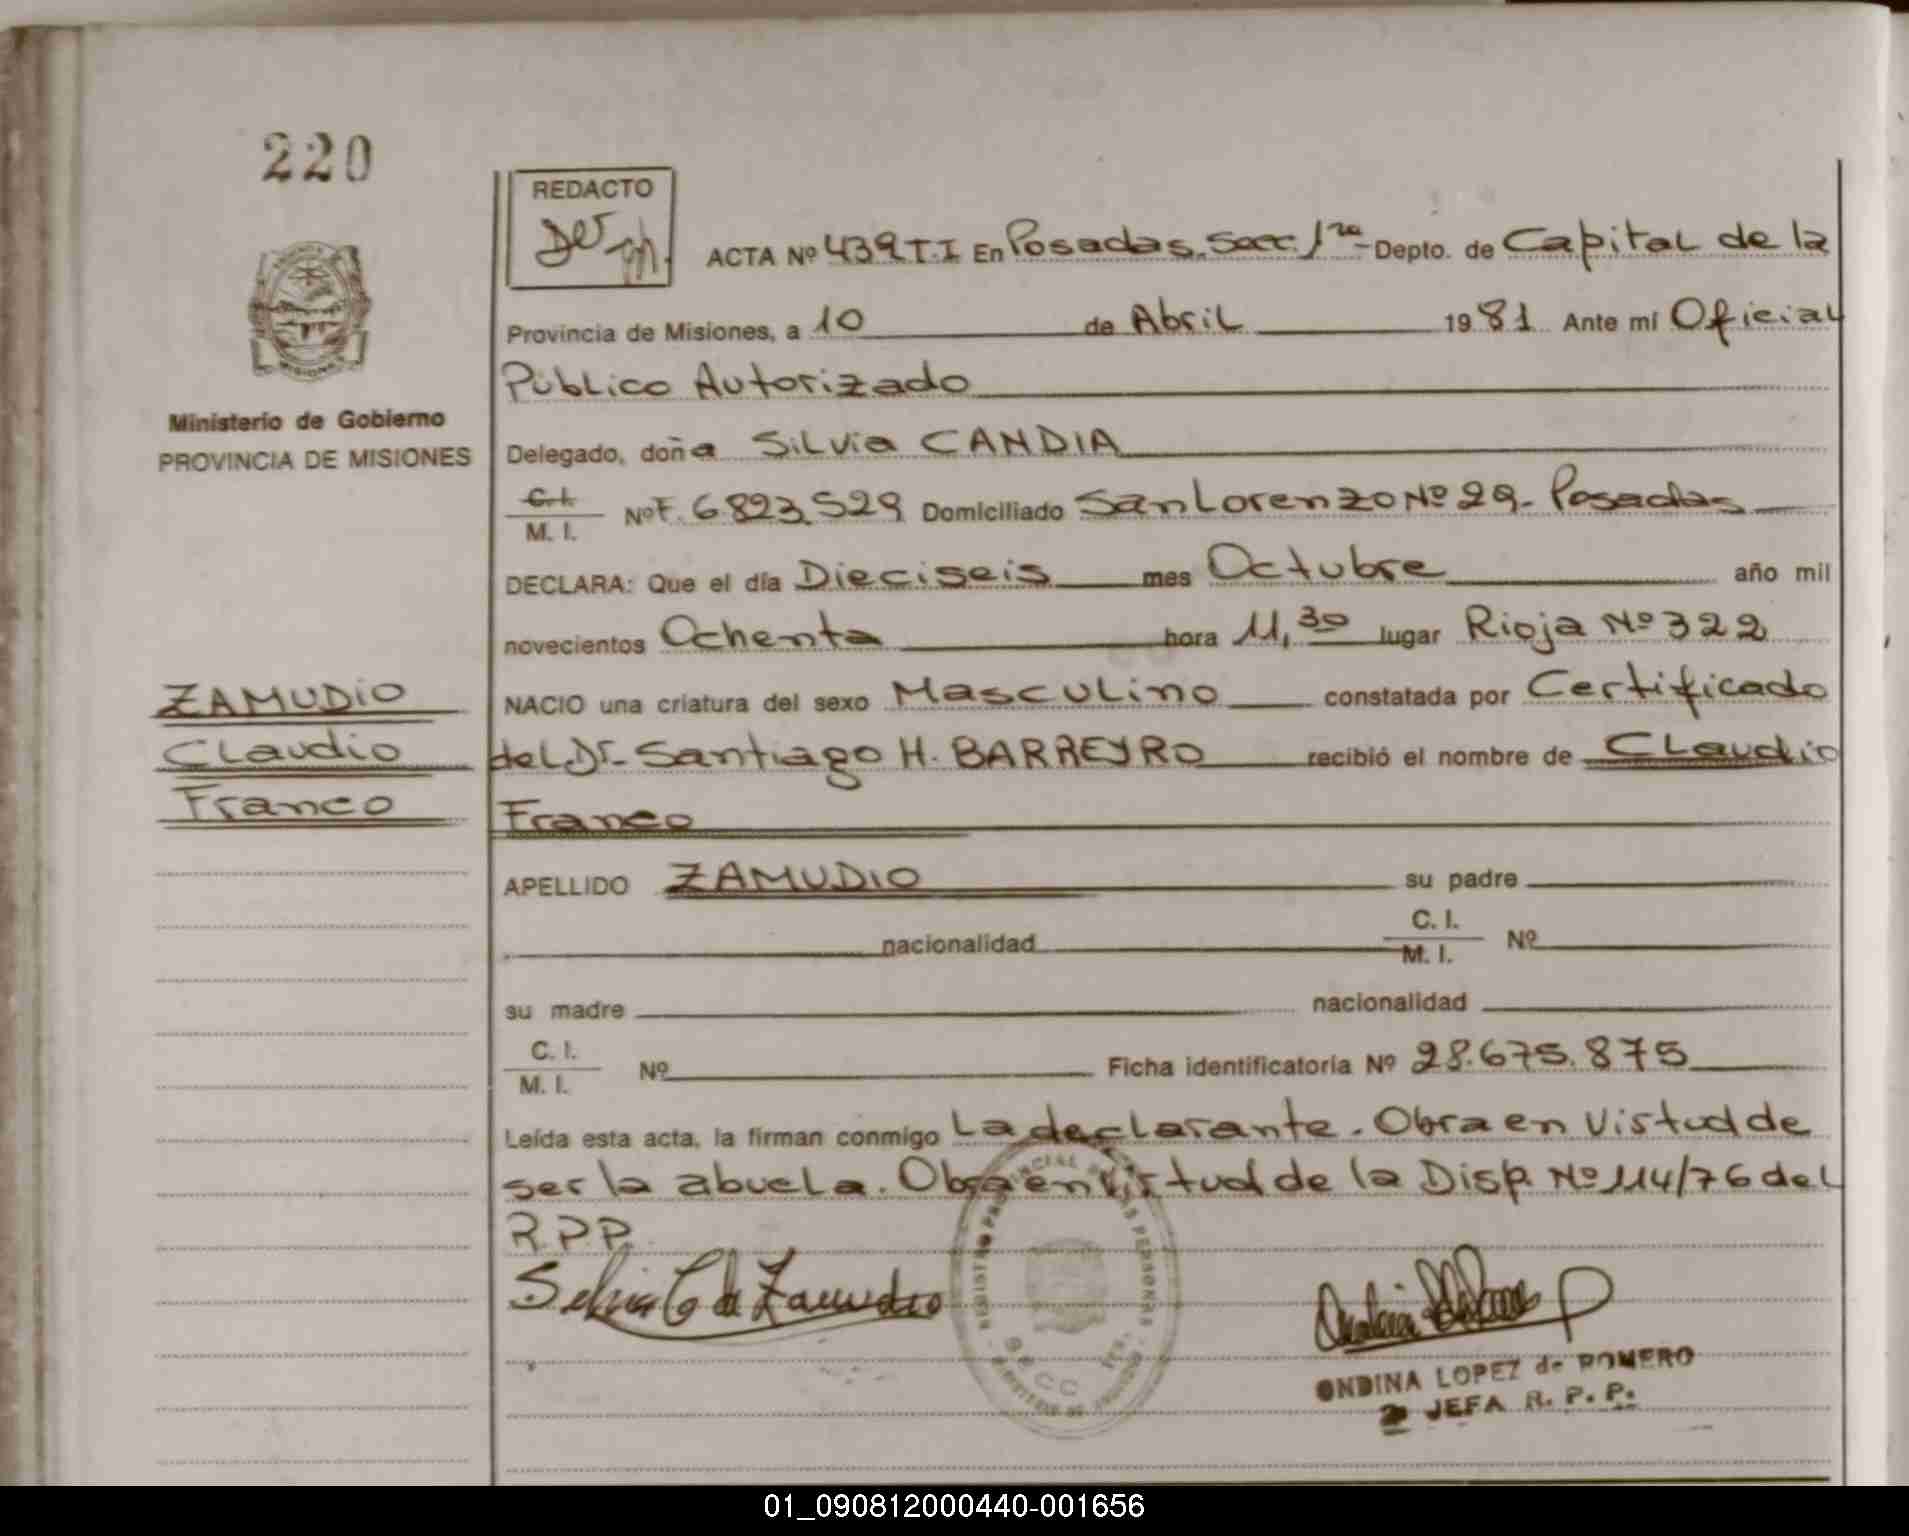 220
REDACTO
ACTA Nº 439 T.I En Posadas, Secc. 1ra- Depto. de Capital de la
Provincia de Misiones, a 10 de Abril 1981 Ante mí Oficial
Público Autorizado
Ministerio de Gobierno
PROVINCIA DE MISIONES
Delegado, doña Silvia CANDIA
C.I.
M. I. Nº F. 6.823.529 Domiciliado San Lorenzo Nº 29- Posadas
DECLARA: Que el día Dieciseis mes Octubre año mil
novecientos Ochenta hora 11,30 lugar Rioja Nº 322
ZAMUDIO
Claudio
Franco
NACIO una criatura del sexo Masculino constatada por Certificado
del Dr- Santiago H. BARREYRO recibió el nombre de Claudio
Franco
APELLIDO ZAMUDIO su padre
nacionalidad C. I.
M. I. Nº
su madre nacionalidad
C. I.
M. I. Nº Ficha identificatoria Nº 28.675.875
Leída esta acta, la firman conmigo La declarante. Obra en virtud de
ser la abuela. Obra en virtud de la Disp. Nº 114/76 del
R.P.P.
Silvia C de Zamudio
REGISTRO PROVINCIAL DE LAS PERSONAS
ONDINA LOPEZ de ROMERO
JEFA R. P. P.
01_090812000440-001656